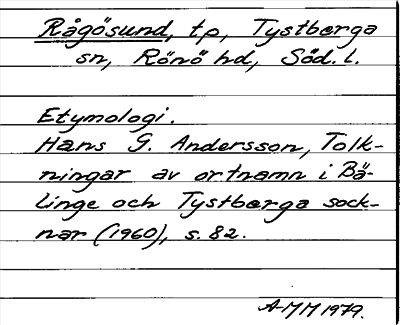 Rågösund, tp, Tystberga
sn, Rönö hd, Söd. l.
Etymologi.
Hans G. Andersson, Tolk-
ningar av ortnamn i Bä-
linge och Tystberga sock-
nar (1960), s. 82.
A-MM 1979.